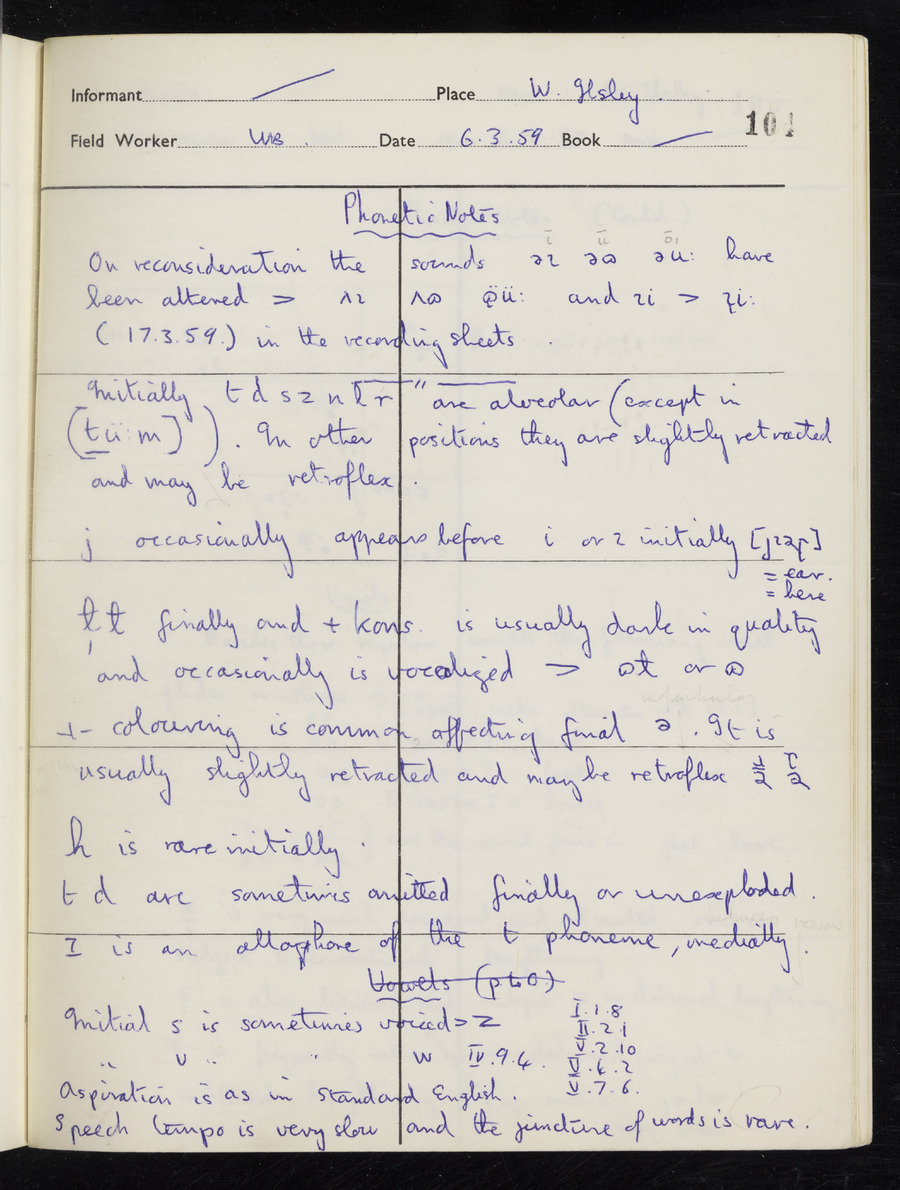 Informant Place W. Ilsley.
104
Field Worker WB. Date 6.3.59 Book
Phonetic Notes
On reconsideration the sounds əɪ əɷ əu: have
been altered > ʌɪ ʌɷ and ɪi > ɪ̨i:
(17.3.59.) in the recording sheets.
Initially t d s z n l r " are alveolar (except in
[tü:m]). In other positions they are slightly retracted
and may be retroflex.
j occasionally appears before i or ɪ initially [jɪəɽ]
= ear.
= here
ɫ̩ ɫ finally and + kons. is usually dark in quality
and occasionally is vocalized > ɷɫ or ɷ
r-colouring is common, affecting final ə. It is
usually slightly retracted and may be retroflex
h is rare initially.
t d are sometimes omitted finally or unexploded.
is an allophone of the t phoneme, medially.
Vowels (p to)
Initial s is sometimes voiced > z I.1.8
II.2.1
" v " " w IV.9.4. V.2.10
V.6.2
V.7.6.
Aspiration is as in Standard English.
Speech tempo is very slow and the juncture of words is rare.